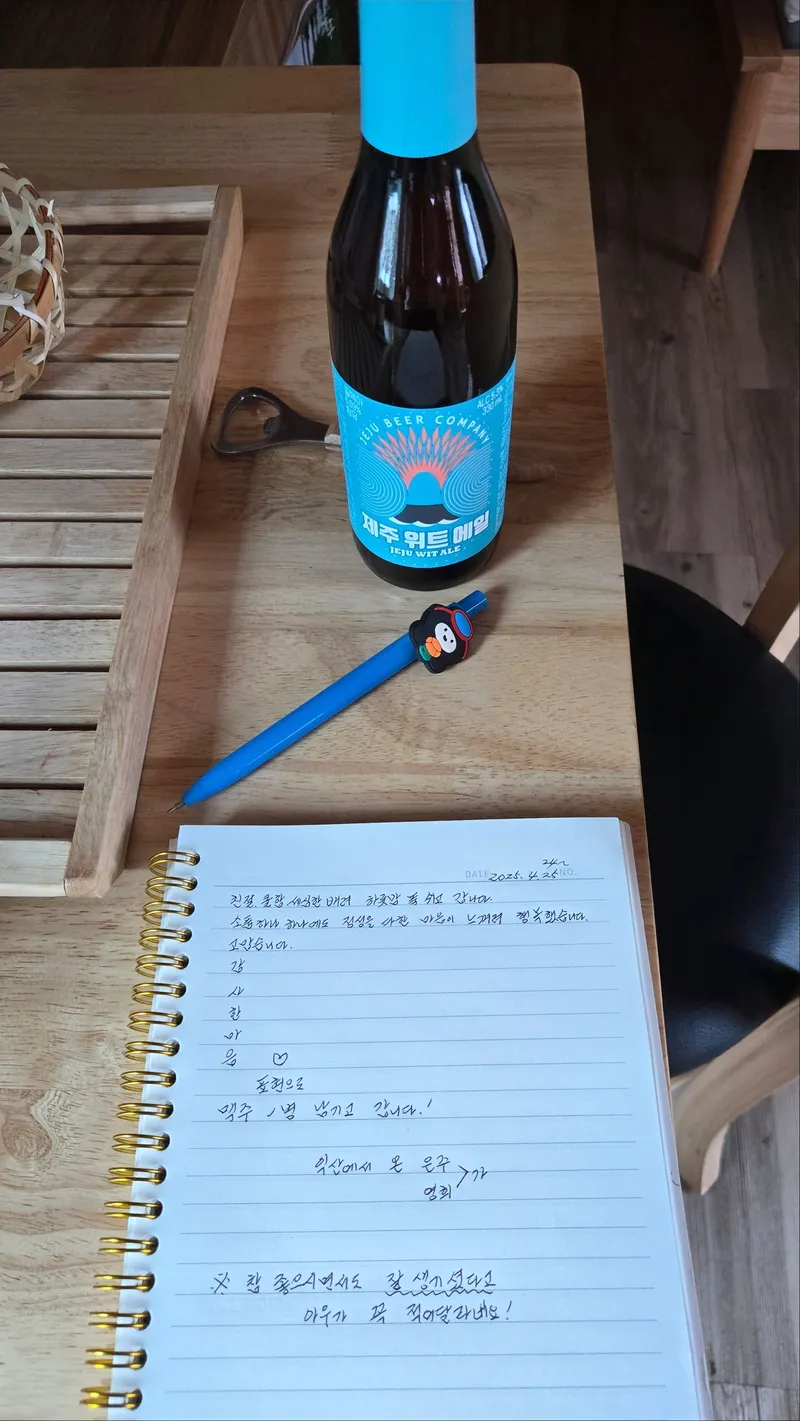 JEJU BEER COMPANY
ALC 5.3%
330 mL
제주 위트 에일
JEJU WIT ALE
24~
DATE 2025. 4. 25 NO.
친절, 물함 세심한 배려 하룻밤 푹 쉬고 갑니다.
소품하나 하나에도 정성을 다한 마음이 느껴져 행복했습니다.
고맙습니다.
감
사
한
마
음 ♡
표현으로
맥주 1병 남기고 갑니다.!
익산에서 온 은주
영희 > 가
※ 참 좋으시면서도 잘 생기셨다고
아우가 꼭 적어달라네요!